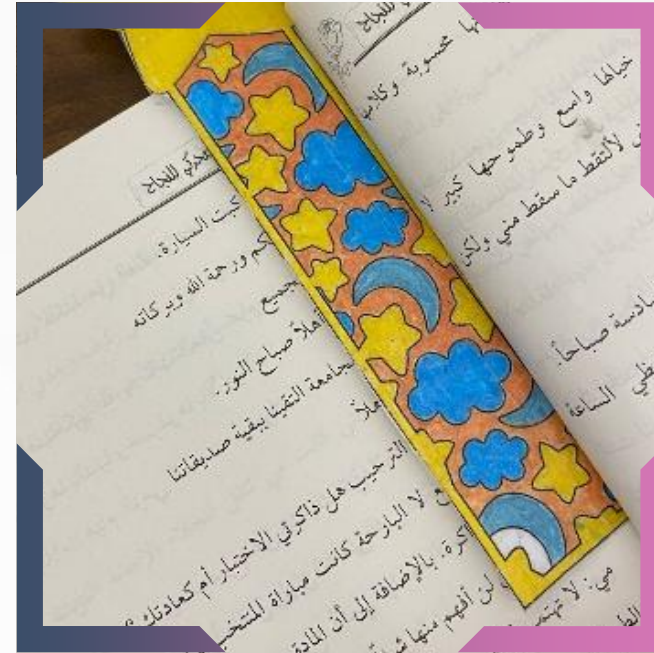 تحدّي للنجاح
كبت السيارة.
كم ورحمة الله وبركاته
جميع
أهلاً صباح النور.
جامعة التقينا ببقية صديقاتنا
هلاً
الترحيب هل ذاكرتي الاختبار أم كعادتك
ع لا البارحة كانت مباراة المنتخب
اكرة. بالإضافة إلى أن المادة
لن أفهم منها
مي: لا تهتم
للنجاح
ها محسوبة وكلا
خيالها واسع وطموحها كبير لا
لألتقط ما سقط مني ولكن
سادسة صباحاً.
ظي الساعة